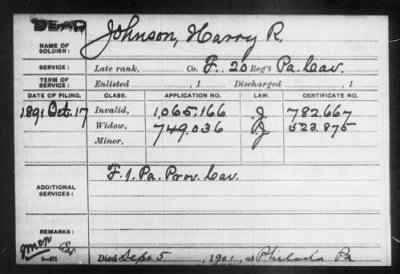 DEAD
Johnson, Harry R.
NAME OF SOLDIER:
SERVICE: Late rank, Co. F. 20 Reg't Pa. Cav.
TERM OF SERVICE: Enlisted , 1 Discharged , 1
DATE OF FILING. CLASS. APPLICATION NO. LAW. CERTIFICATE NO.
1891 Oct. 17 Invalid, 1,065.166 J 782.667
Widow, 749.036 J 523.875
Minor,
F. 1. Pa. Prov. Cav.
ADDITIONAL SERVICES:
REMARKS:
Died Sept 5, 1901, at Philada Pa